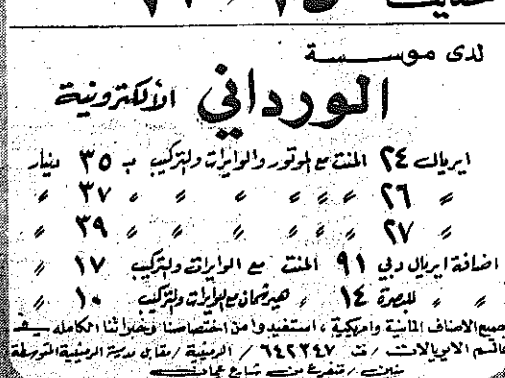 لدى موسسة
الورداني الألكترونية
ايريال ٢٤ المنت مع الموتور والوايرات والتركيب بـ ٣٥ دينار
〃 ٢٦ 〃 〃 〃 〃 〃 〃 ٣٧ 〃
〃 ٢٧ 〃 〃 〃 〃 〃 〃 ٣٩ 〃
اضافة ايريال دبي ٩١ المنت مع الوايرات والتركيب ١٧ 〃
〃 〃 للبصرة ١٤ 〃 مع الوايرات والتركيب ١٠ 〃
جميع الاصناف المانية وامريكية ، استفيدوا من اختصاصنا وخبراتنا الكامله في
عالم الايريالات ، ت ٦٤٢٣٤٧ /
متفرع من شارع عمان